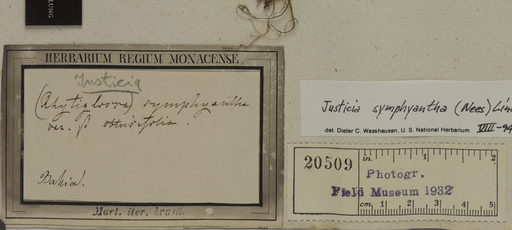 LUNG
HERBARIUM REGIUM MONACENSE.
Justicia
(Rhytiglossa) symphyantha
var. β obtusifolia.
Bahia.
Mart. iter. brasil.
Justicia symphyantha (Nees) Lind
det. Dieter C. Wasshausen, U. S. National Herbarium VIII-94
20509
in. 1 2
Photogr.
Field Museum 1932
cm. 1 2 3 4 5